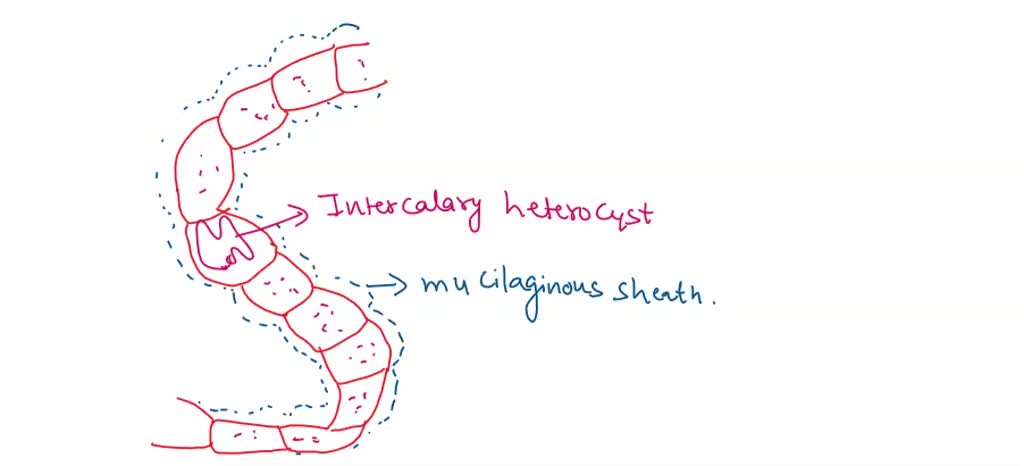 Intercalary heterocyst
mucilaginous sheath.